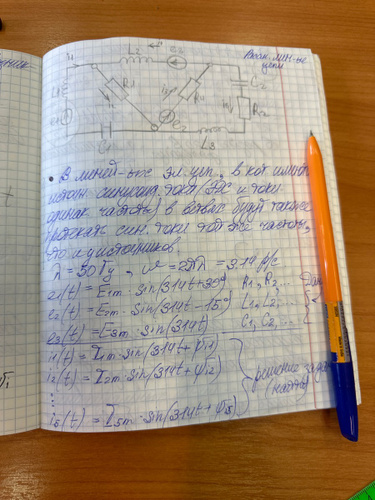 L2
R1
R4
e2
C2
R2
C1
L3
В линейных эл. цеп., в кот. имеют
источ. синусоид. токи (ЭДС и токи
одинак. частоты) в ветвях будут также
протекать син. токи той же частоты,
что и у источников.
λ = 50 Гц, w = 2πλ = 314 р/с
e1(t) = E1m · sin(314t+30°) R1, R2, ...
e2(t) = E2m · sin(314t - 15°) L1, L2, ...
e3(t) = E3m · sin(314t) C1, C2, ...
i1(t) = I1m · sin(314t + ψi1)
i2(t) = I2m · sin(314t + ψi2) решение зада
⋮ (найти)
i5(t) = I5m · sin(314t + ψi5)